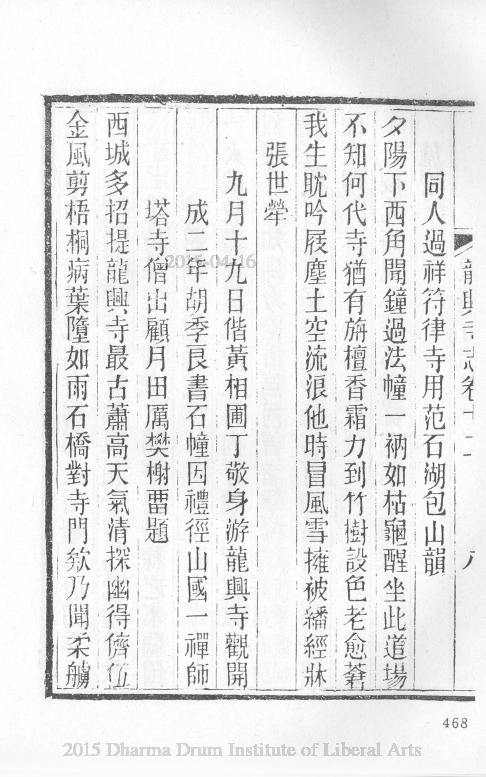 龍興寺志卷十二 八
同人過祥符律寺用范石湖包山韻
夕陽下西角聞鐘過法幢一衲如枯龜醒坐此道場
不知何代寺猶有旃檀香霜力到竹樹設色老愈蒼
我生耽吟屐塵土空流浪他時冒風雪擁被繙經牀
張世犖
九月十九日偕黃相圃丁敬身游龍興寺觀開
成二年胡季良書石幢因禮徑山國一禪師
塔寺僧出顧月田厲樊榭畱題
西城多招提龍興寺最古蕭高天氣清探幽得儕伍
金風剪梧桐病葉墮如雨石橋對寺門欸乃聞柔艣
2015-04-16
468
2015 Dharma Drum Institute of Liberal Arts